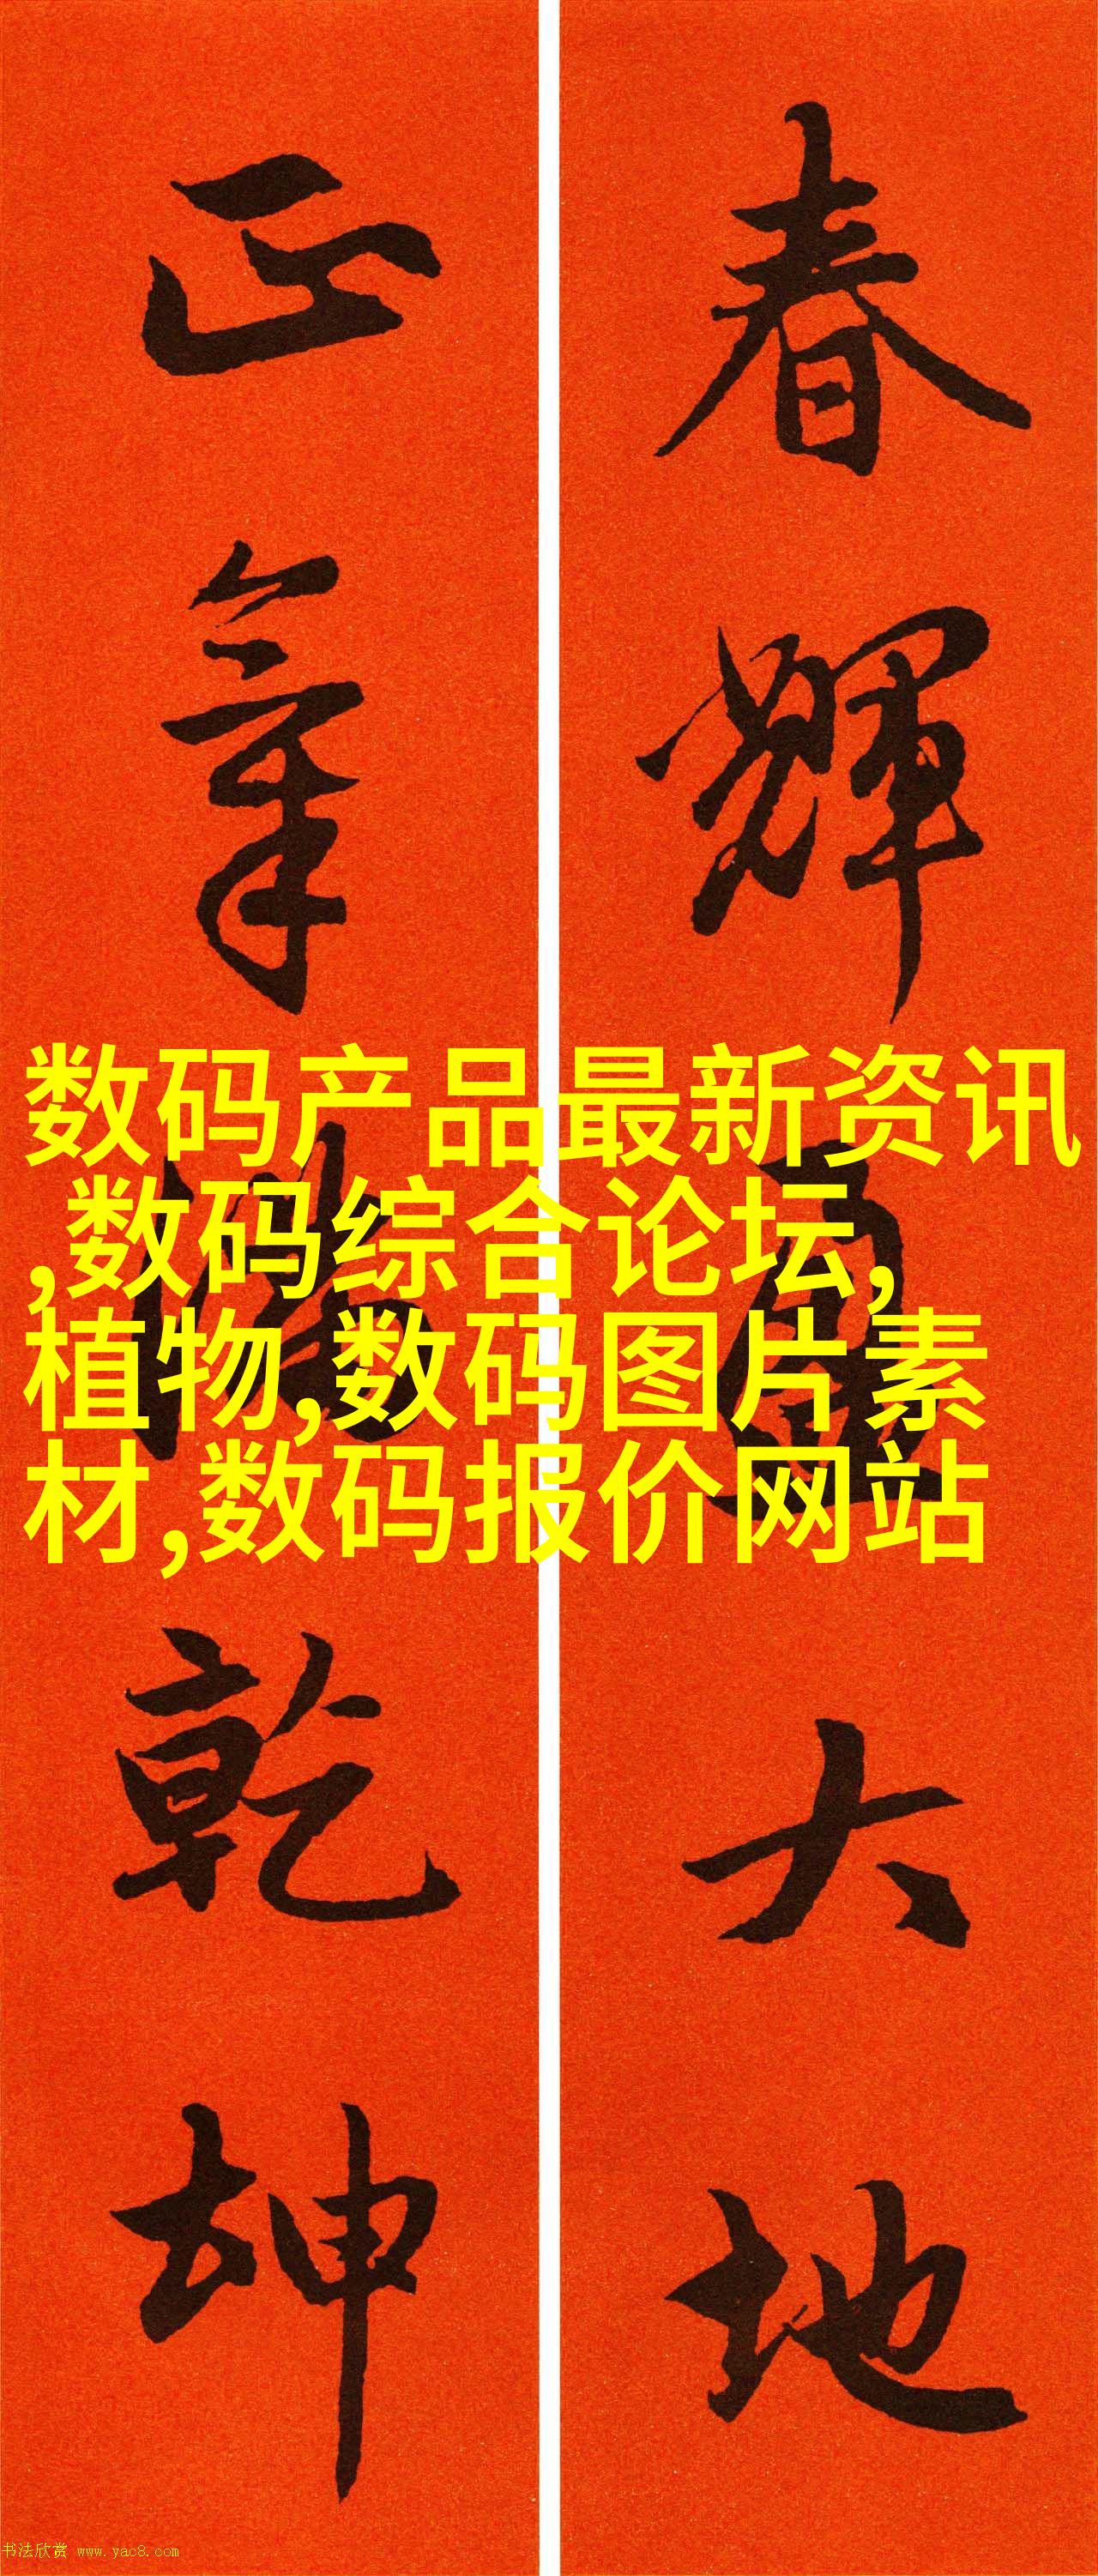 春輝盈大地
正氣滿乾坤
数码产品最新资讯
,数码综合论坛,
植物,数码图片素
材,数码报价网站
书法欣赏 www.yac8.com